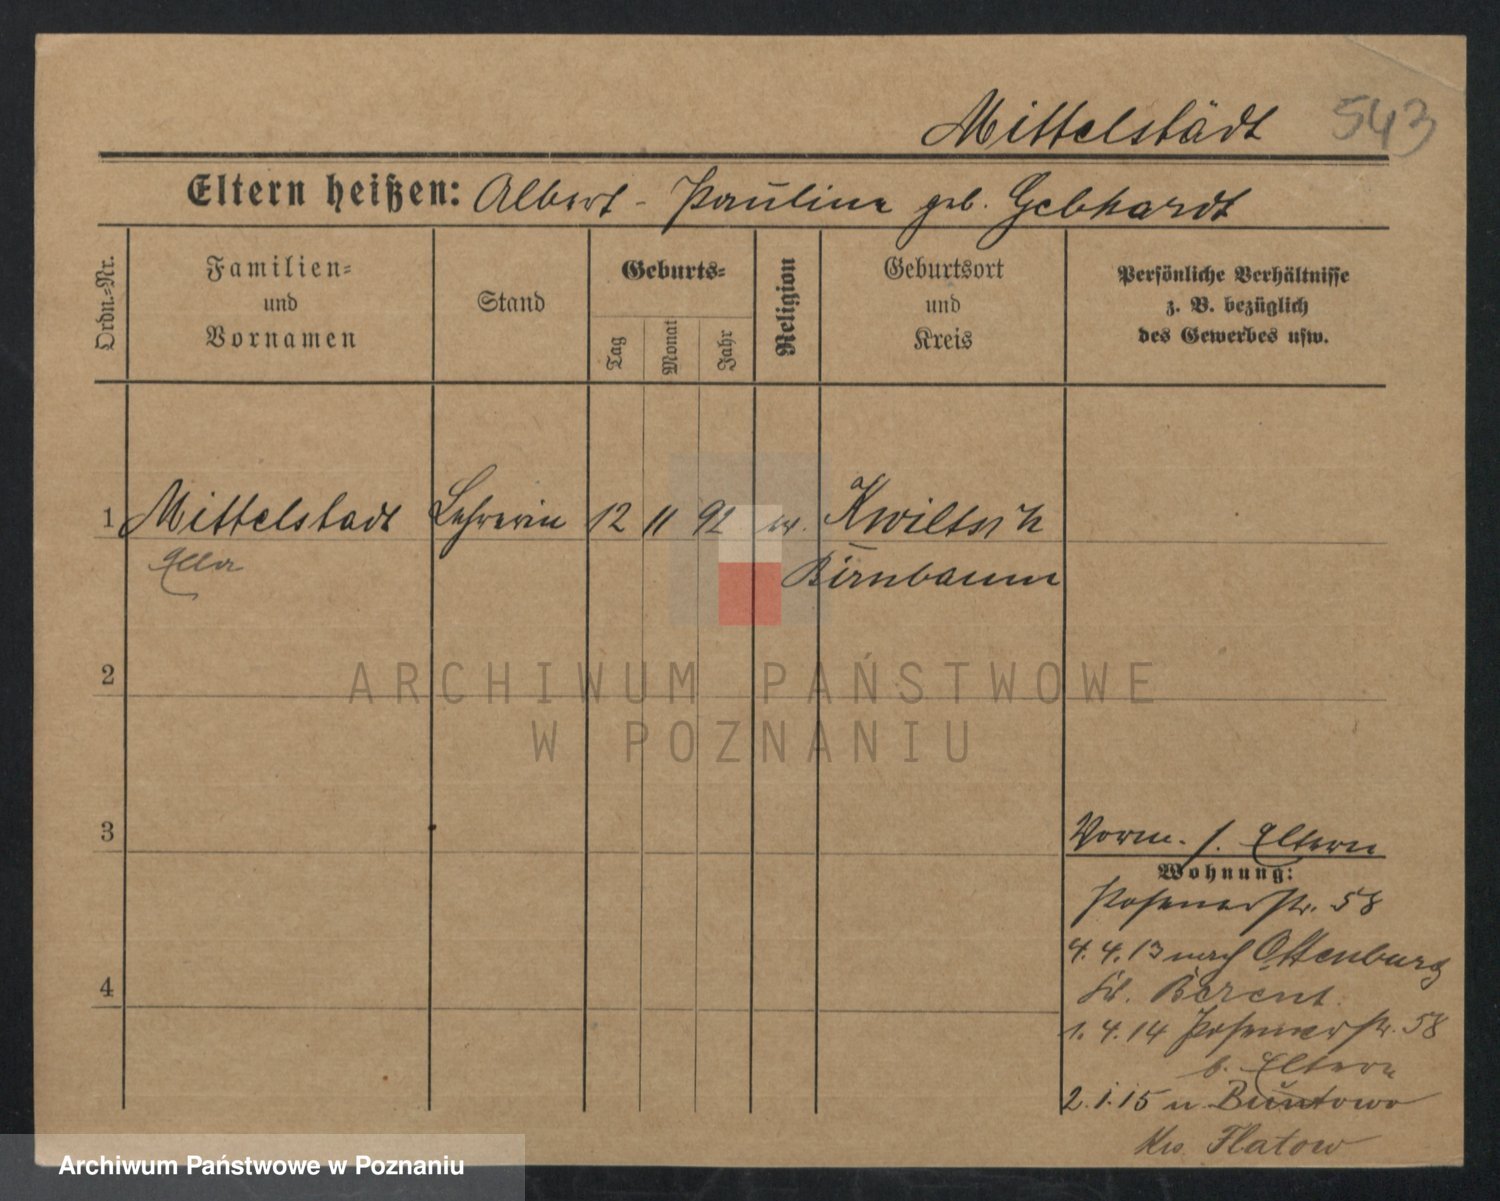 Mittelstädt 543
Eltern heißen: Albert - Pauline geb. Gebhardt
Ordn.-Nr.
Familien-
und
Vornamen
Stand
Geburts-
Tag
Monat
Jahr
Religion
Geburtsort
und
Kreis
Persönliche Verhältnisse
z. B. bezüglich
des Gewerbes usw.
1 Mittelstadt Lehrerin 12 11 92 ev.
Ella
Birnbaum
2
ARCHIWUM PAŃSTWOWE
W POZNANIU
3
Vorm. s. Eltern
Wohnung:
Posenerstr. 58
4
4. 4. 13 nach
Berent.
1. 4. 14 Posenerstr. 58
b. Eltern
2. 1. 15 n. Buntowo
Krs. Flatow
Archiwum Państwowe w Poznaniu